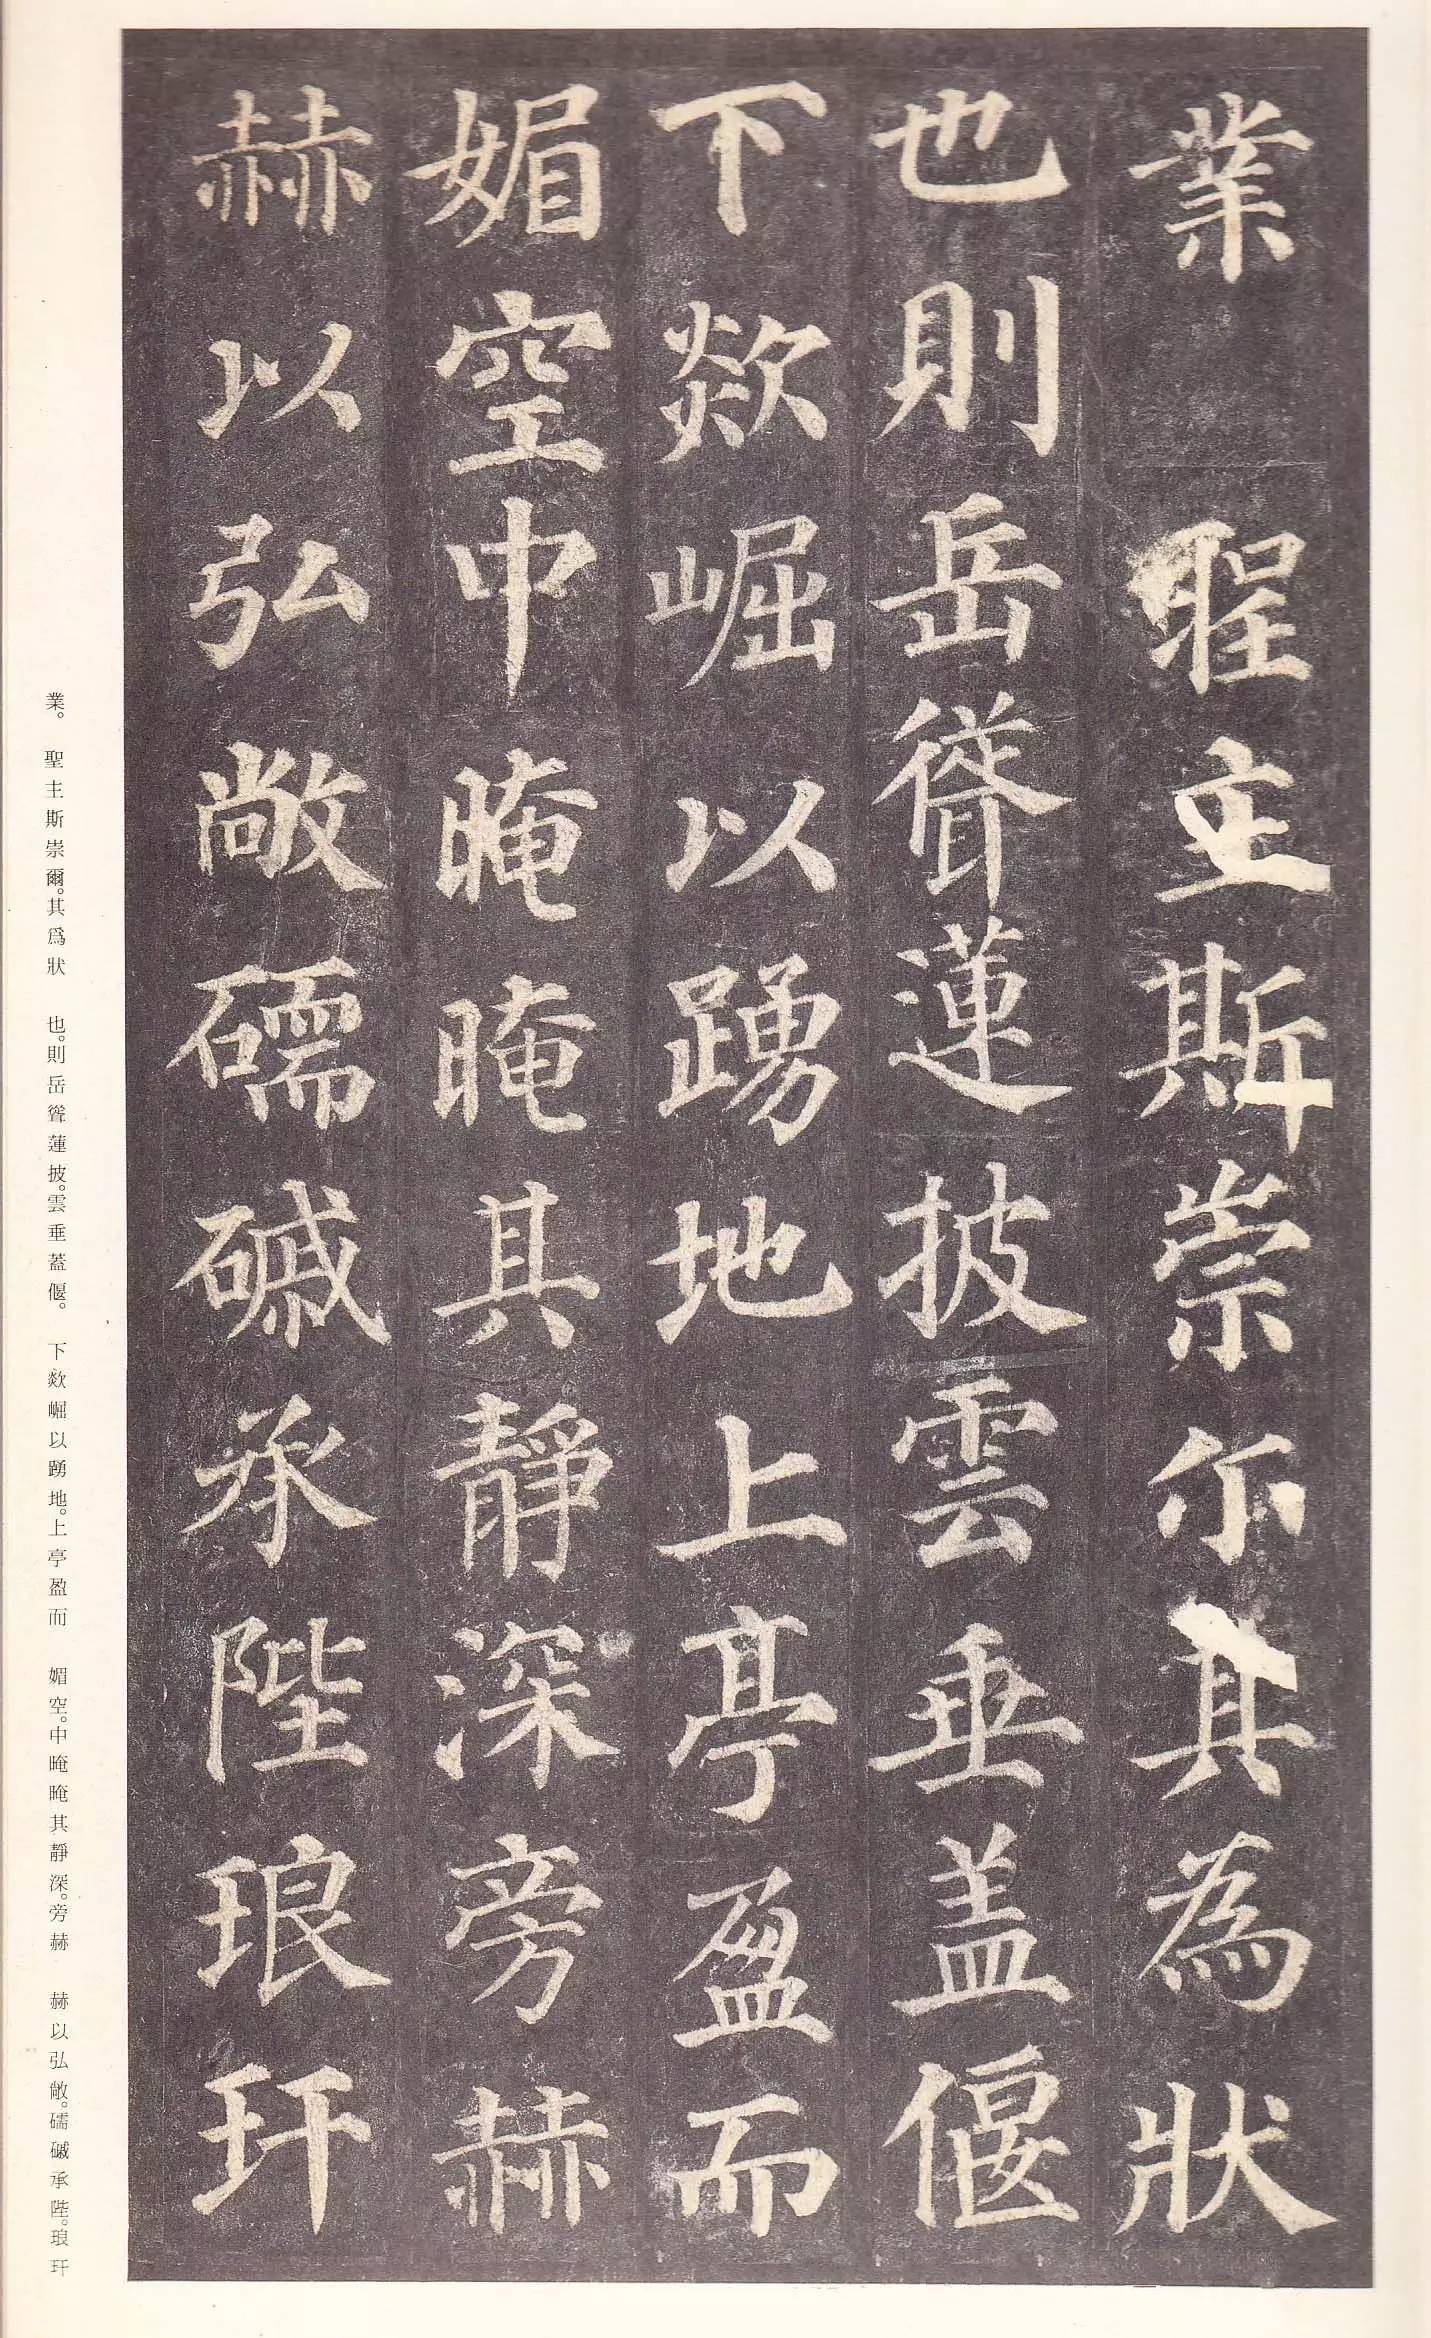 業　聖主斯崇尔其為狀
也則岳聳蓮披雲垂盖偃
下欻崛以踴地上亭盈而
媚空中晻晻其靜深旁赫
赫以弘敞礝磩承陛琅玕
業。　聖主斯崇爾。其爲狀　也。則岳聳蓮披。雲垂蓋偃。　下欻崛以踴地。上亭盈而　媚空。中晻晻其靜深。旁赫　赫以弘敞。礝磩承陛。琅玕